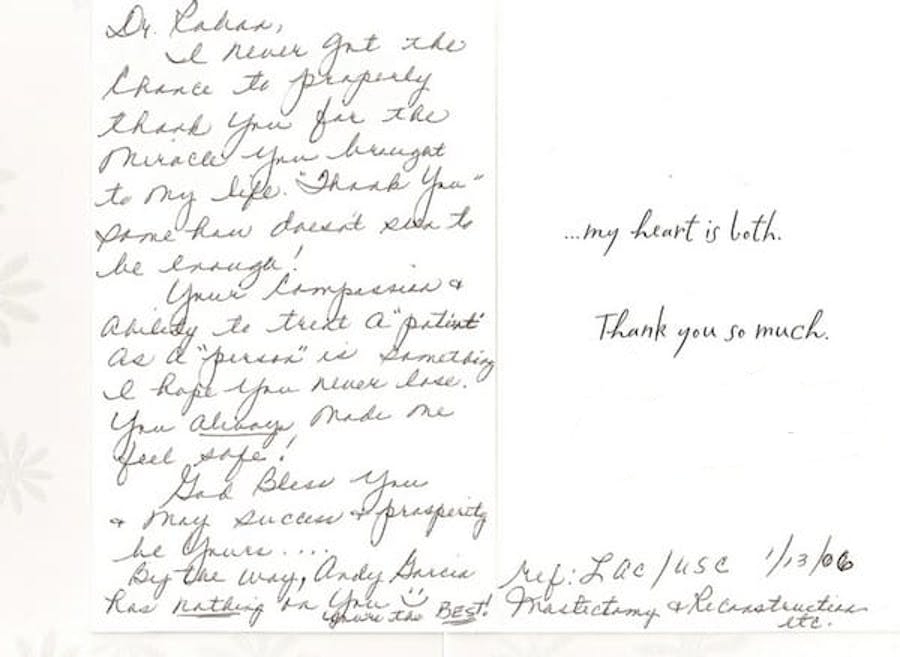 Dr. Rahan,
I never got the
Chance to properly
thank you for the
Miracle you brought
to my life. "Thank You"
somehow doesn't seem to
be enough!
Your Compassion &
Ability to treat A "patient"
as a "person" is something
I hope you never lose.
You always made me
feel safe!
God Bless You
& May success & prosperity
be yours....
By the way, Andy Garcia
has nothing on You
you're the BEST!
...my heart is both.
Thank you so much.
ref: LAC/USC 1/13/06
Mastectomy & Reconstruction
etc.